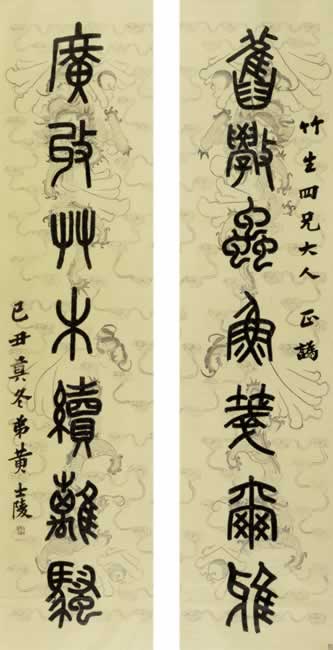 舊斆蟲魚箋爾雅
竹生四兄大人 正譌
廣收艸木續離騷
己丑真冬弟黃士陵